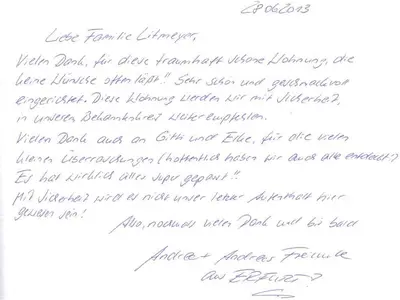 28.06.2013
Liebe Familie Litmeyer,
Vielen Dank, für diese traumhaft schöne Wohnung, die
keine Wünsche offen läßt!! Sehr schön und geschmackvoll
eingerichtet. Diese Wohnung werden wir mit Sicherheit,
in unseren Bekanntkreis weiterempfehlen.
Vielen Dank auch an Gitti und Eike, für die vielen
kleinen Überraschungen (hoffentlich haben wir auch alle entdeckt?
Es hat wirklich alles super gepasst!!
Mit Sicherheit wird es nicht unser letzter Aufenthalt hier
gewesen sein!
Also, nochmals vielen Dank und bis bald
Andrea + Andreas
aus ERFURT